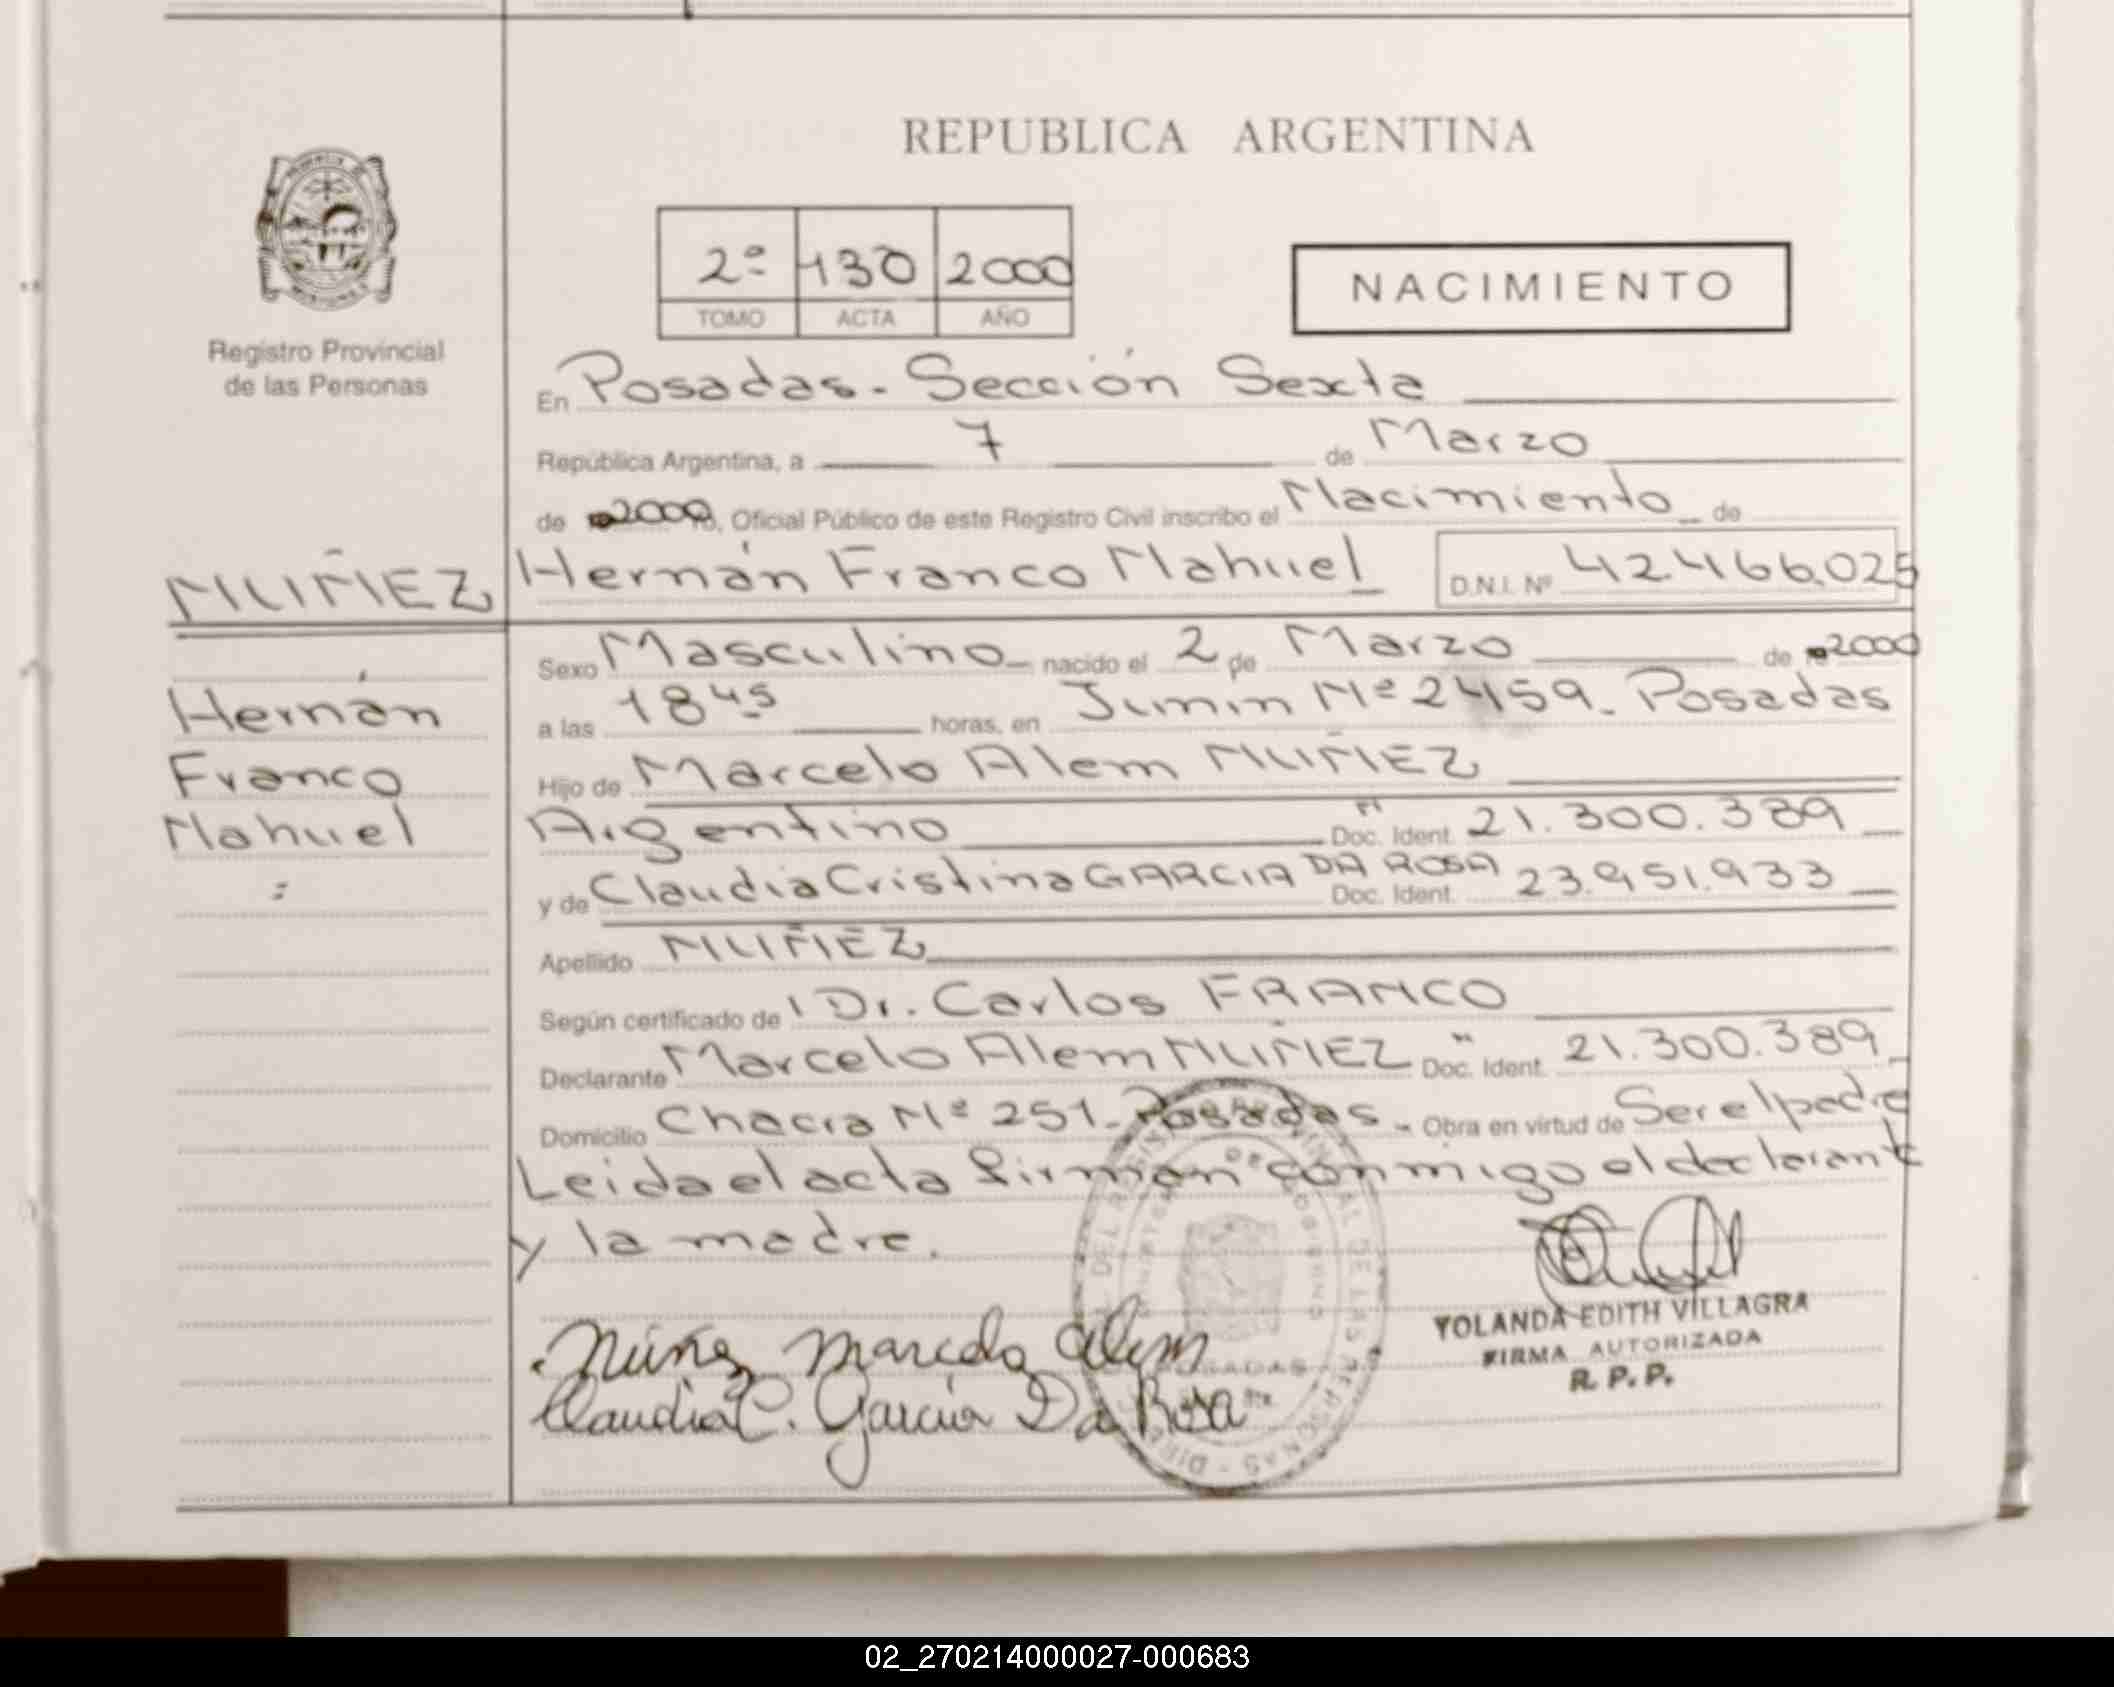 REPUBLICA ARGENTINA
2º 130 2000
TOMO ACTA AÑO
NACIMIENTO
Registro Provincial
de las Personas
En Posadas - Sección Sexta
República Argentina, a 7 de Marzo
de 2000, Oficial Público de este Registro Civil inscribo el Nacimiento de
NUÑEZ Hernán Franco Nahuel D.N.I. Nº 42.466.025
Hernán
Franco
Nahuel
Sexo Masculino nacido el 2 de Marzo de 2000
a las 18 45 horas, en Junín Nº 2459 - Posadas
Hijo de Marcelo Alem NUÑEZ
Argentino Doc. Ident. 21.300.389
y de Claudia Cristina GARCIA DA ROSA Doc. Ident. 23.951.933
Apellido NUÑEZ
Según certificado de Dr. Carlos FRANCO
Declarante Marcelo Alem NUÑEZ Doc. Ident. 21.300.389
Domicilio Chacra Nº 251 - Posadas - Obra en virtud de Ser el padre
Leida el acta firman conmigo el declarante
y la madre.
Nuñez Marcelo Alem
Claudia C. García Da Rosa
YOLANDA EDITH VILLAGRA
FIRMA AUTORIZADA
R. P. P.
02_270214000027-000683